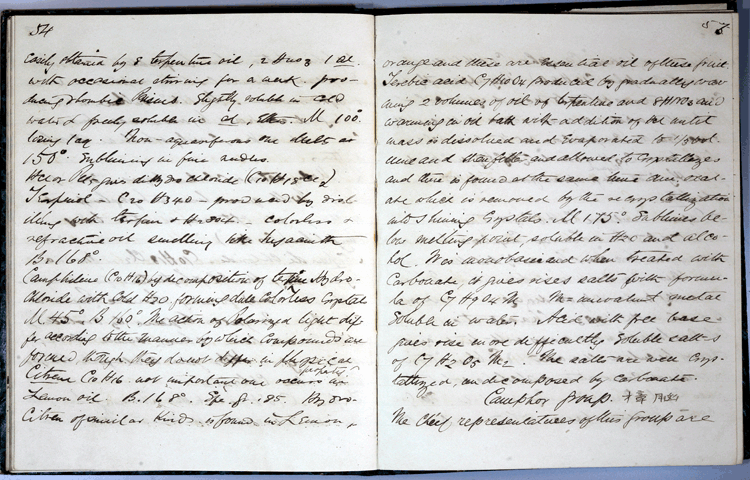 54
easily obtained by 8 terpentine oil, 2 HNO3 1 al.
with occasional stirring for a week. pro-
ducing rhombic Prisms. Slightly soluble in cold
water & freely soluble in al, M 100°
losing 1 aq. Non aqueous one melts at
150°. Sublining in fine nedles.
HCl or gives di hydrochloride
Terpinol C20 H34O - produced by dist
illing with terpin + - colorless &
refractive oil smelling like hyacinth
B. 168°.
Camphilene (C10H16) by decomposition of hydro-
chloride with Cold H2O forming colorless Crystal
M 45° B 160° The action of Polarized light dif
fer according to the manner by which Compounds are
formed though they do not differ in physical
properties
Citrene C10H16. not important one occurs in
Lemon oil. B. 168° Spe. g. .85. Hydro-
Citren of similar kinds is found in Lemon,
57
orange and there are essential oil of these fruit
Terebic acid C7H10O4 produced by gradually war
ming 2 volumes of oil of terpentine and 8HNO3 and
warming in oil bath with addition of until
mass is dissolved and Evaporated to vol
ume and then filter and allowed to Crystallize
and there is found at the same time oxal
ate which is removed by the recrystallization
into shining Crystals. M 175° Sublimes be
low melting point, soluble in H2O and alco
hol. It is monobasic and when treated with
Carbonate, it gives rises salts with formu-
la of C7 H9O4 M. M = univalent metal
Soluble in water. Acid with free base
gives one more difficultly Soluble salts
of C7 H2 O5 M2 The salts are non Crys-
tallized, and composed by carbonate.
Camphor group.
The Chief representatives of this group are